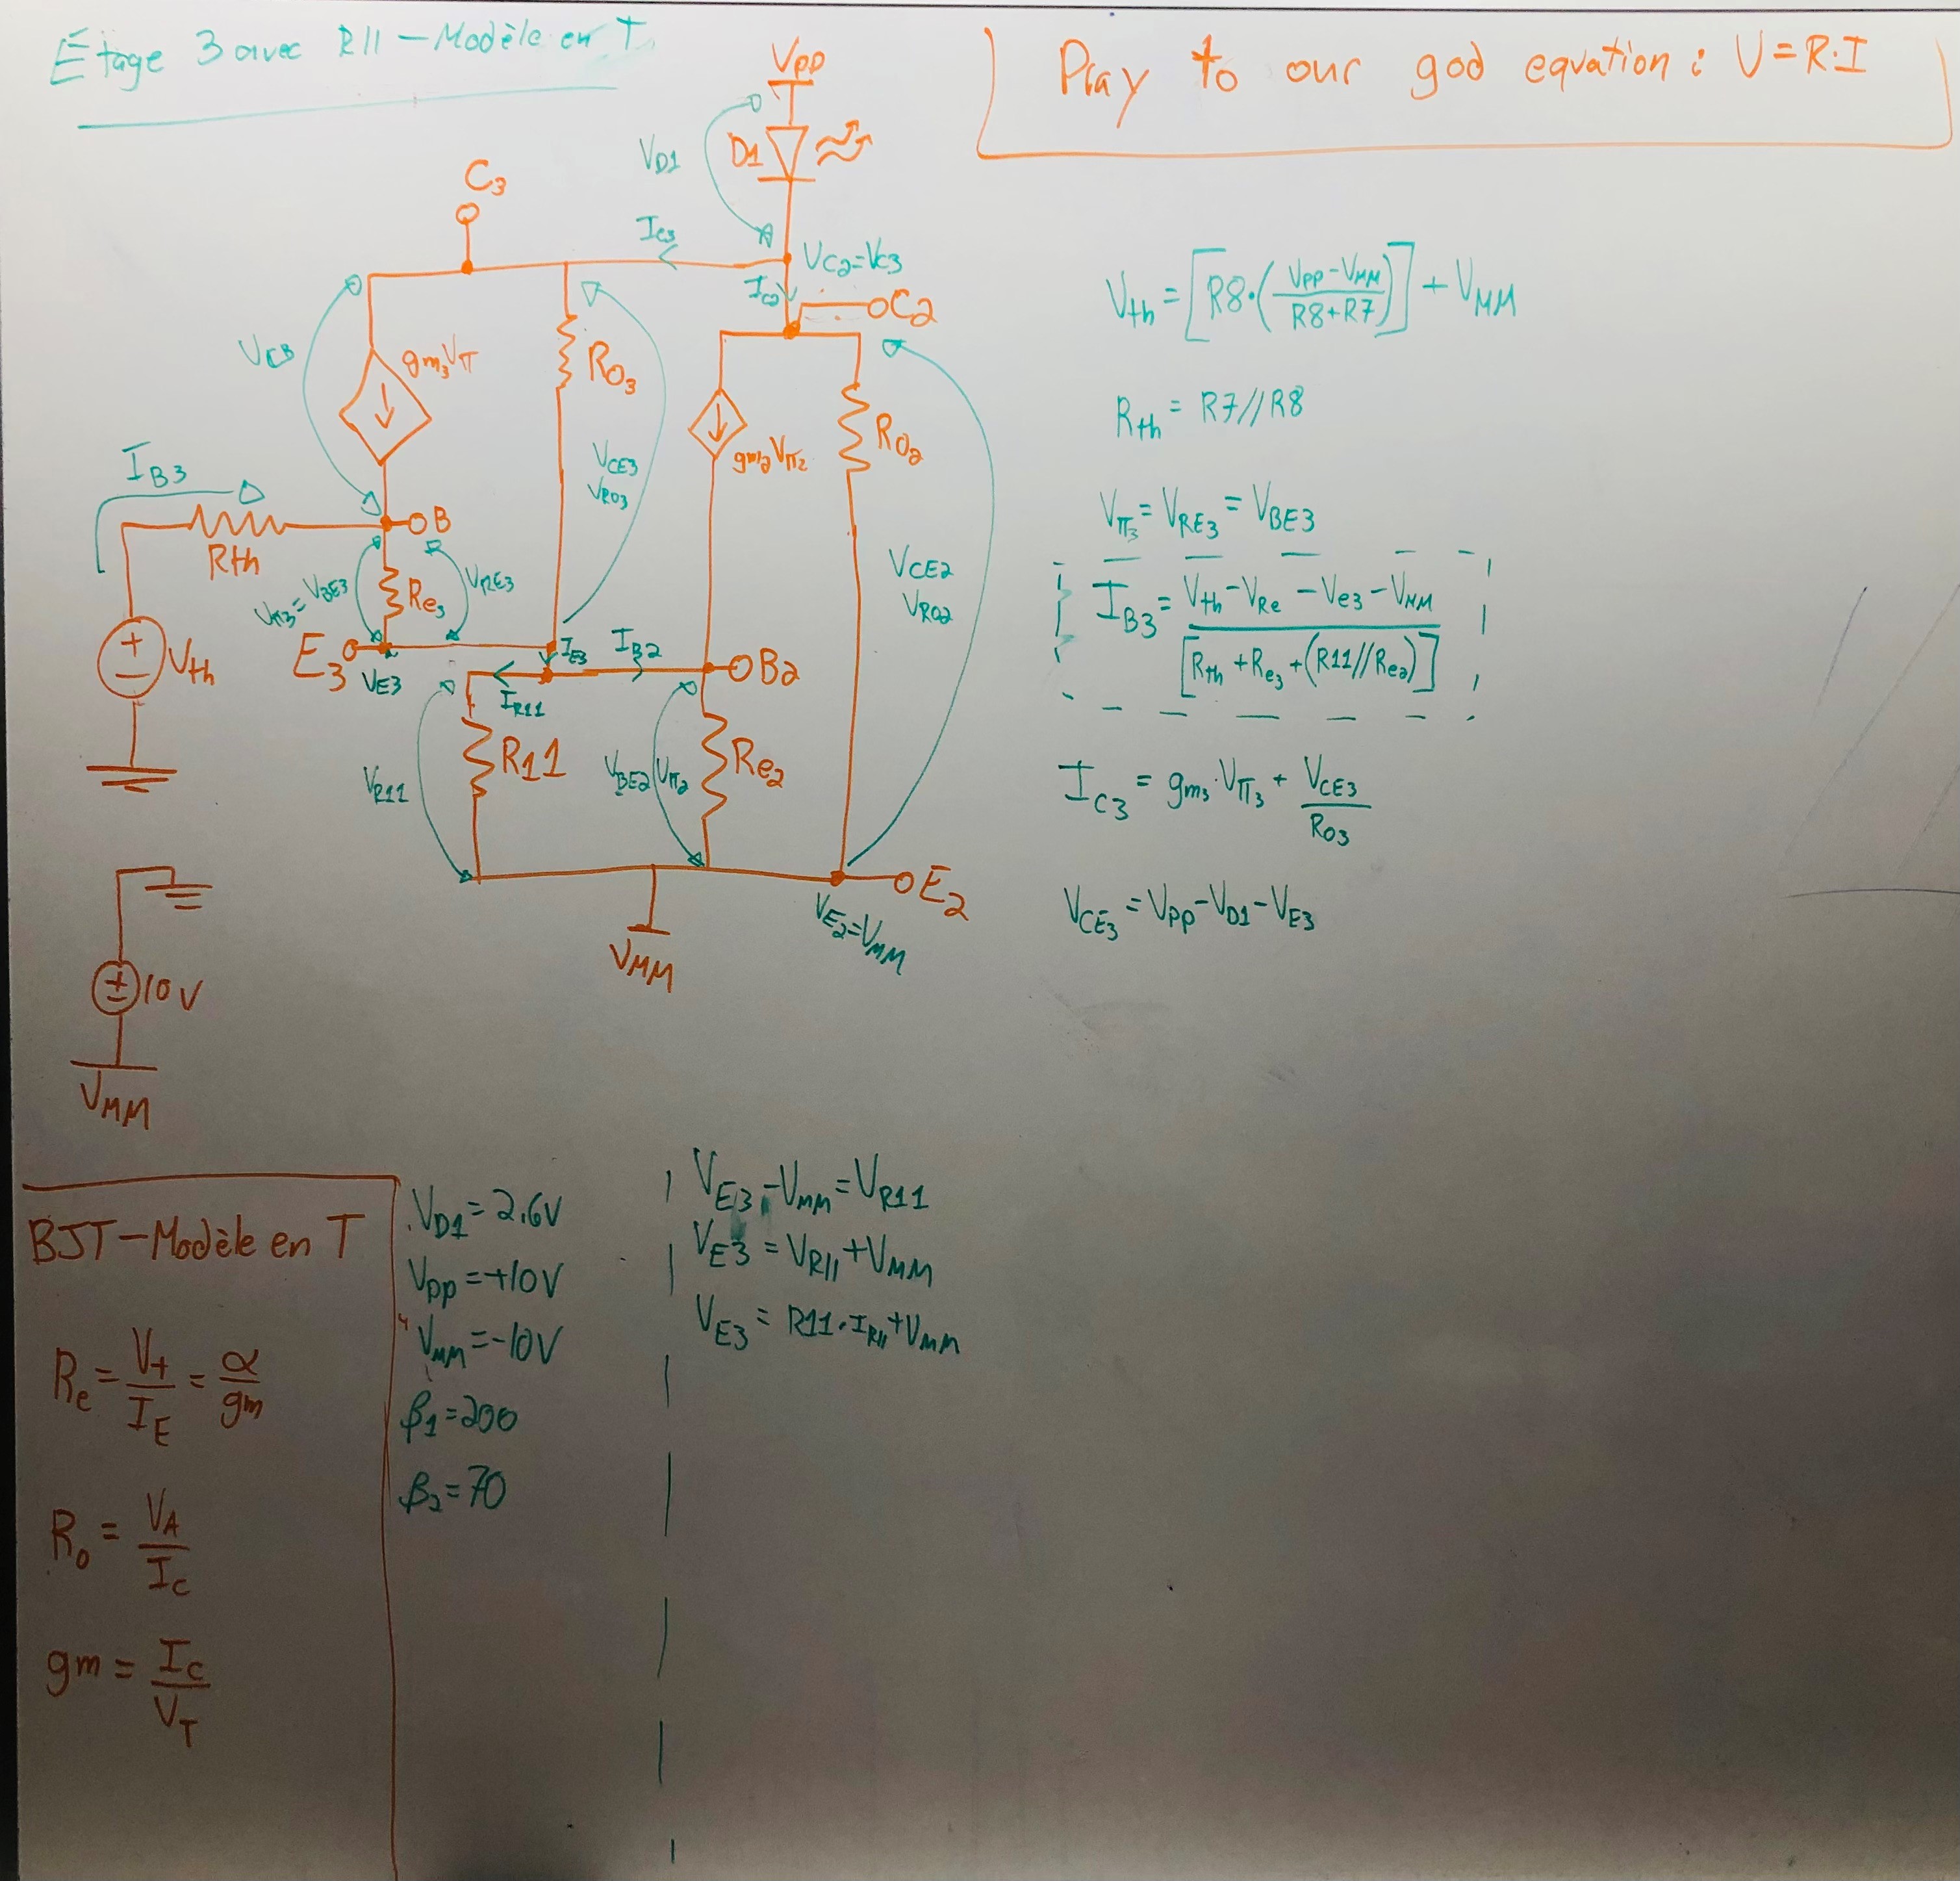 Etage 3 avec R11 – Modèle en T
Pray to our god equation : V=R·I
VPP
VD1
D1
C3
IC3
VC2=VC3
IC2
C2
VCB
gm3Vπ
RO3
gm2Vπ2
RO2
IB3
VCE3
VRO3
B
Rth
Vπ3=VBE3
Re3
VRE3
VCE2
VRO2
Vth
E3
VE3
IE3
IB2
B2
IR11
VR11
R11
VBE2
Vπ2
Re2
E2
VE2=VMM
VMM
10V
VMM
Vth = [R8·(VPP-VMM / R8+R7)] + VMM
Rth = R7//R8
Vπ3 = VRE3 = VBE3
IB3 = Vth - VRe - Ve3 - VMM / [Rth + Re3 + (R11//Re2)]
IC3 = gm3·Vπ3 + VCE3 / RO3
VCE3 = VPP - VD1 - VE3
BJT – Modèle en T
Re = Vt / IE = α / gm
Ro = VA / IC
gm = IC / VT
VD1 = 2.6V
VPP = +10V
VMM = -10V
β1 = 200
β2 = 70
VE3 - VMM = VR11
VE3 = VR11 + VMM
VE3 = R11·IR11 + VMM